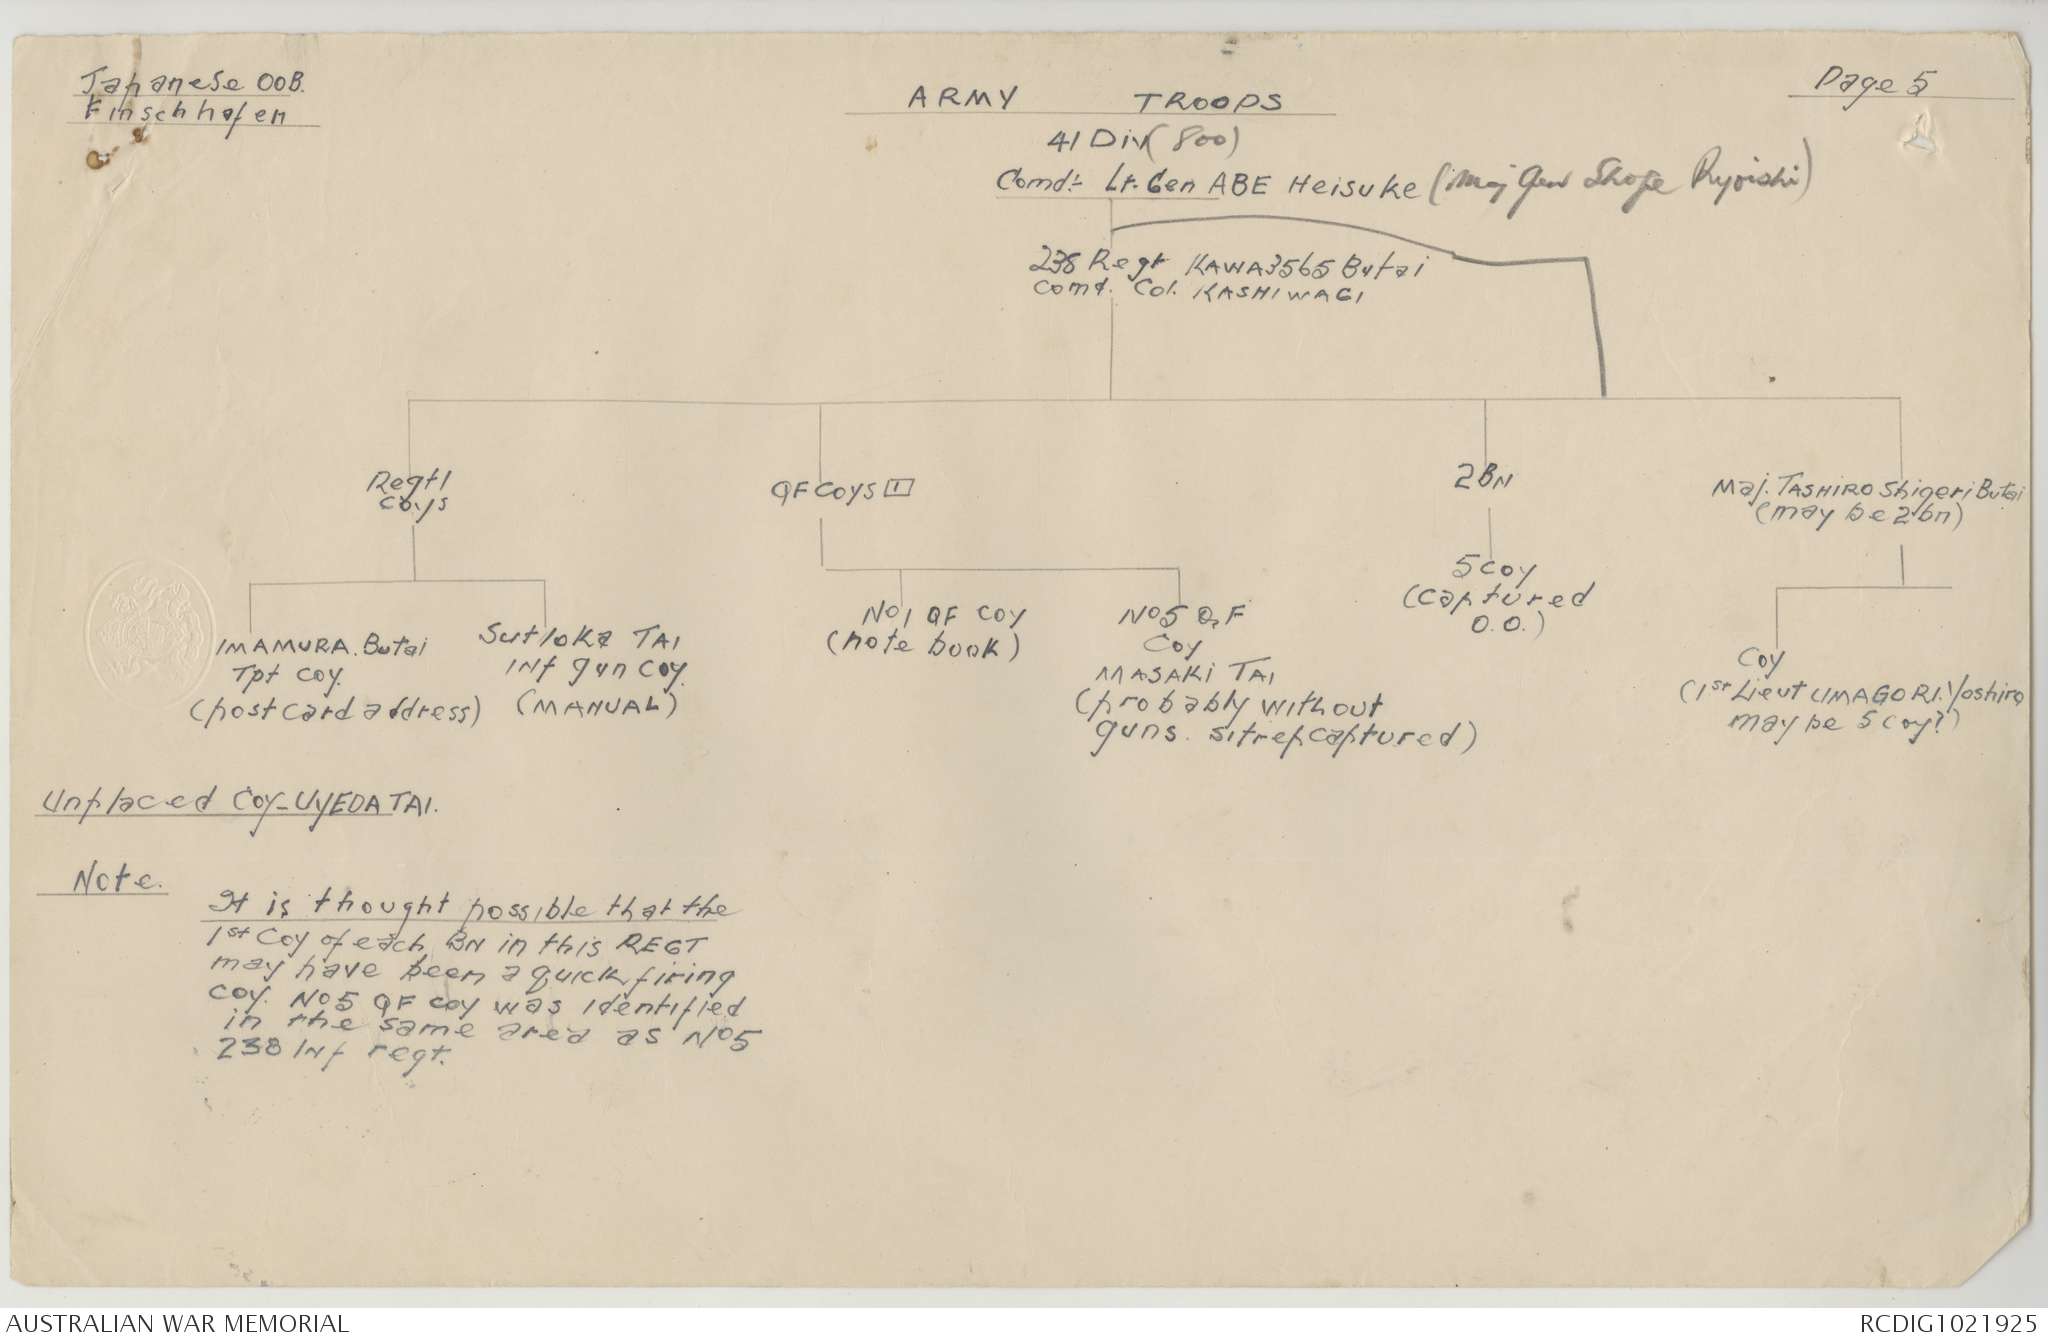 Japanese OOB.
Finschhafen
Page 5
ARMY TROOPS
41 Div (800)
Comd:- Lt. Gen ABE Heisuke (Maj Gen Shoge Ryoishi)
238 Regt KAWA 3565 Butai
Comd. Col. KASHIWAGI
Regtl
Coys
QF COYS 1
2 BN
Maj. TASHIRO Shigeri Butai
(may be 2 bn)
IMAMURA. Butai
Tpt Coy.
(post card address)
TAI
INf gun Coy.
(MANUAL)
No1 QF COY
(note book)
No5 Q.F
Coy
MASAKI TAI
(probably without
guns. sitrep captured)
5 Coy
(captured
O.O.)
Coy
(1st Lieut UMAGORI. Yoshiro
may be 5 Coy?)
Unplaced Coy - UYEDA TAI.
Note.
It is thought possible that the
1st Coy of each BN in this REGT
may have been a quick firing
coy. No5 QF coy was identified
in the same area as No5
238 INf regt.
AUSTRALIAN WAR MEMORIAL
RCDIG1021925